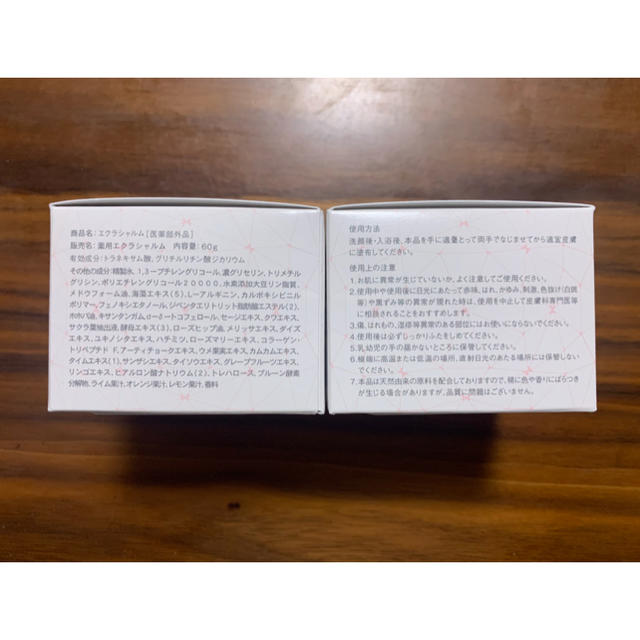 商品名:エクラシャルム[医薬部外品]
販売名:薬用エクラシャルム 内容量:60g
有効成分:トラネキサム酸、グリチルリチン酸ジカリウム
その他の成分:精製水、1,3-ブチレングリコール、濃グリセリン、トリメチル
グリシン、ポリエチレングリコール20000、水素添加大豆リン脂質、
メドウフォーム油、海藻エキス(5)、L-アルギニン、カルボキシビニル
ポリマー、フェノキシエタノール、ジペンタエリトリット脂肪酸エステル(2)、
ホホバ油、キサンタンガム、d-δ-トコフェロール、セージエキス、クワエキス、
サクラ葉抽出液、酵母エキス(3)、ローズヒップ油、メリッサエキス、ダイズ
エキス、ユキノシタエキス、ハチミツ、ローズマリーエキス、コラーゲン・
トリペプチド F、アーティチョークエキス、ウメ果実エキス、カムカムエキス、
タイムエキス(1)、サンザシエキス、タイソウエキス、グレープフルーツエキス、
リンゴエキス、ヒアルロン酸ナトリウム(2)、トレハロース、プルーン酵素
分解物、ライム果汁、オレンジ果汁、レモン果汁、香料
使用方法
洗顔後・入浴後、本品を手に適量とって両手でなじませてから適宜皮膚
に塗布してください。
使用上の注意
1.お肌に異常が生じていないか、よく注意してご使用ください。
2.使用中や使用後に日光にあたって赤味、はれ、かゆみ、刺激、色抜け(白斑
等)や黒ずみ等の異常が現れた時は、使用を中止して皮膚科専門医等
に相談されることをおすすめします。
3.傷、はれもの、湿疹等異常のある部位にはお使いにならないでください。
4.使用後は必ずしっかりふたをしめてください。
5.乳幼児の手の届かないところに保管してください。
6.極端に高温または低温の場所、直射日光のあたる場所には保管しない
でください。
7.本品は天然由来の原料を配合しておりますので、稀に色や香りにばらつき
が生じる場合がありますが、品質に問題はございません。